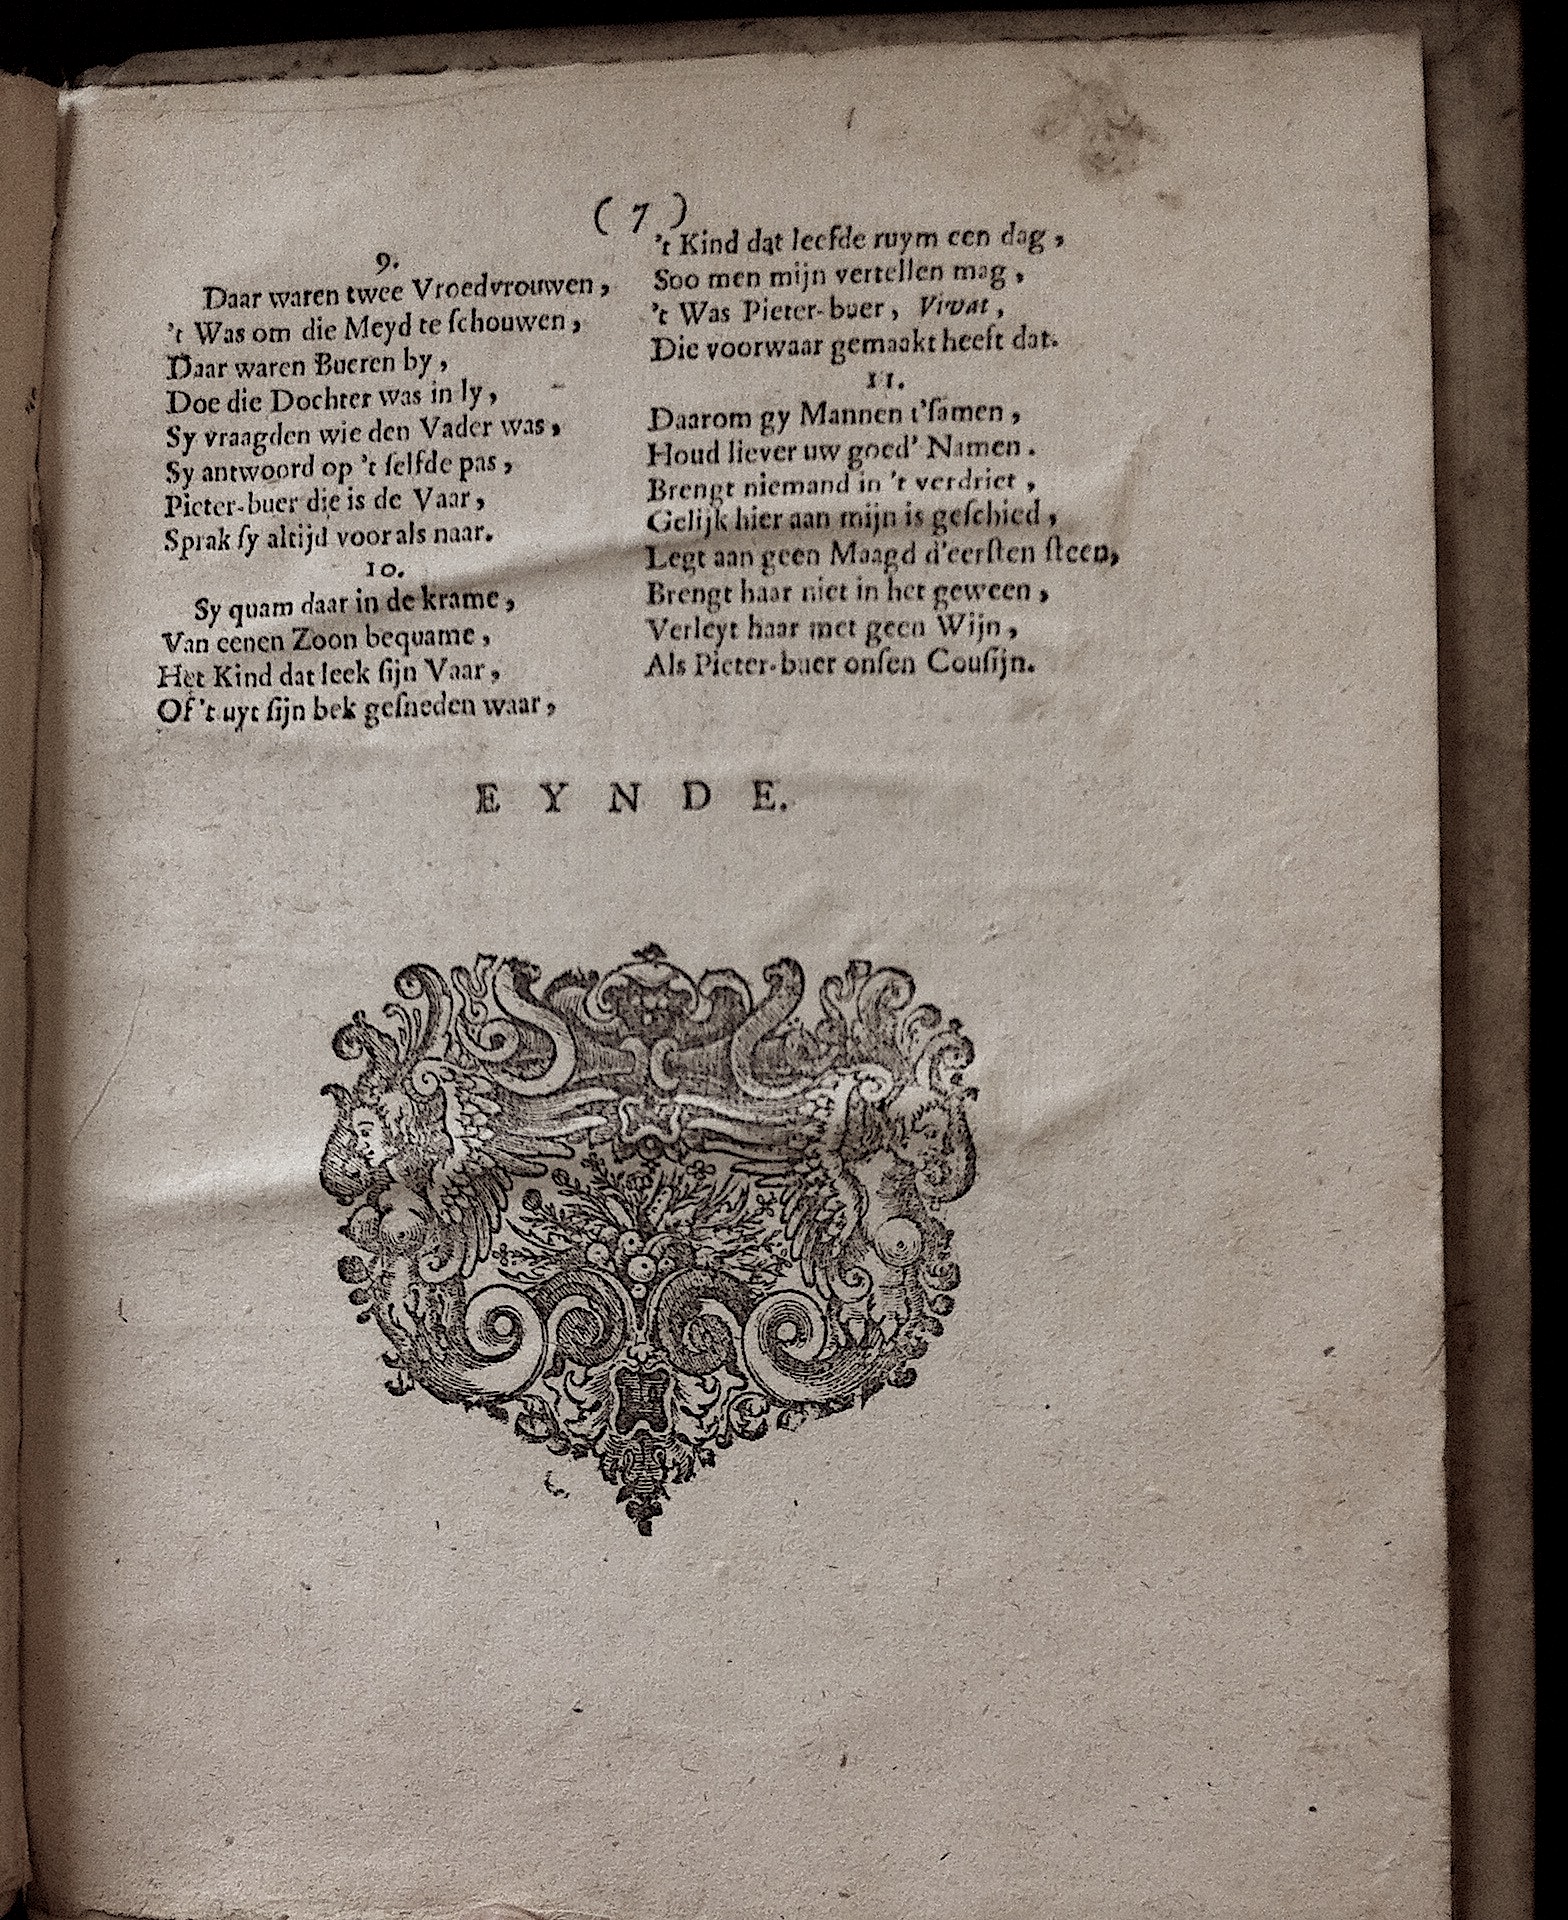 ( 7 )
9.
Daar waren twee Vroedvrouwen,
't Was om die Meyd te ſchouwen,
Daar waren Bueren by,
Doe die Dochter was in ly,
Sy vraagden wie den Vader was,
Sy antwoord op 't ſelfde pas,
Pieter-buer die is de Vaar,
Sprak ſy altijd voor als naar.
10.
Sy quam daar in de krame,
Van eenen Zoon bequame,
Het Kind dat leek ſijn Vaar,
Of 't uyt ſijn bek geſneden waar,
't Kind dat leefde ruym een dag,
Soo men mijn vertellen mag,
't Was Pieter-buer, Vivat,
Die voorwaar gemaakt heeft dat.
11.
Daarom gy Mannen t'ſamen,
Houd liever uw goed' Namen.
Brengt niemand in 't verdriet,
Gelijk hier aan mijn is geſchied,
Legt aan geen Maagd d'eerſten ſteen,
Brengt haar niet in het geween,
Verleyt haar met geen Wijn,
Als Pieter-buer onſen Couſijn.
EYNDE.